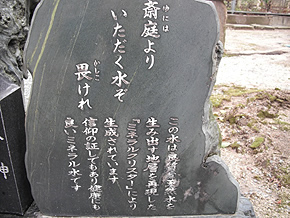 斎庭より
ゆには
いただく水ぞ
畏けれ
かしこ
この水は良質な天然水を
生み出す地層を再現した
『ミネラルクリスタ』により
生成されています
信仰の証してもあり健康にも
良いミネラル水です
神